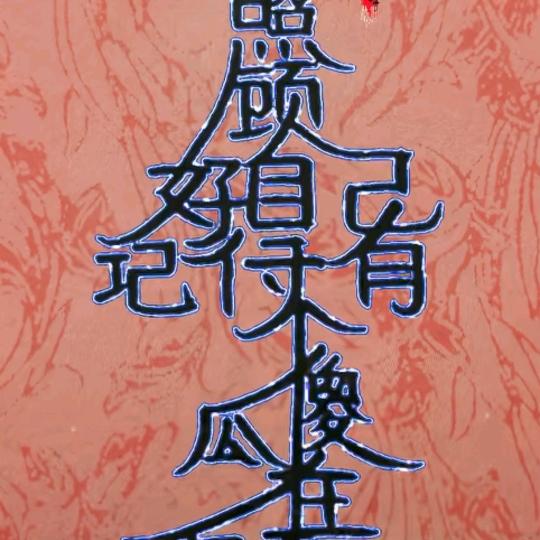 照
顾
好自己
记得有
木
傻
瓜
在